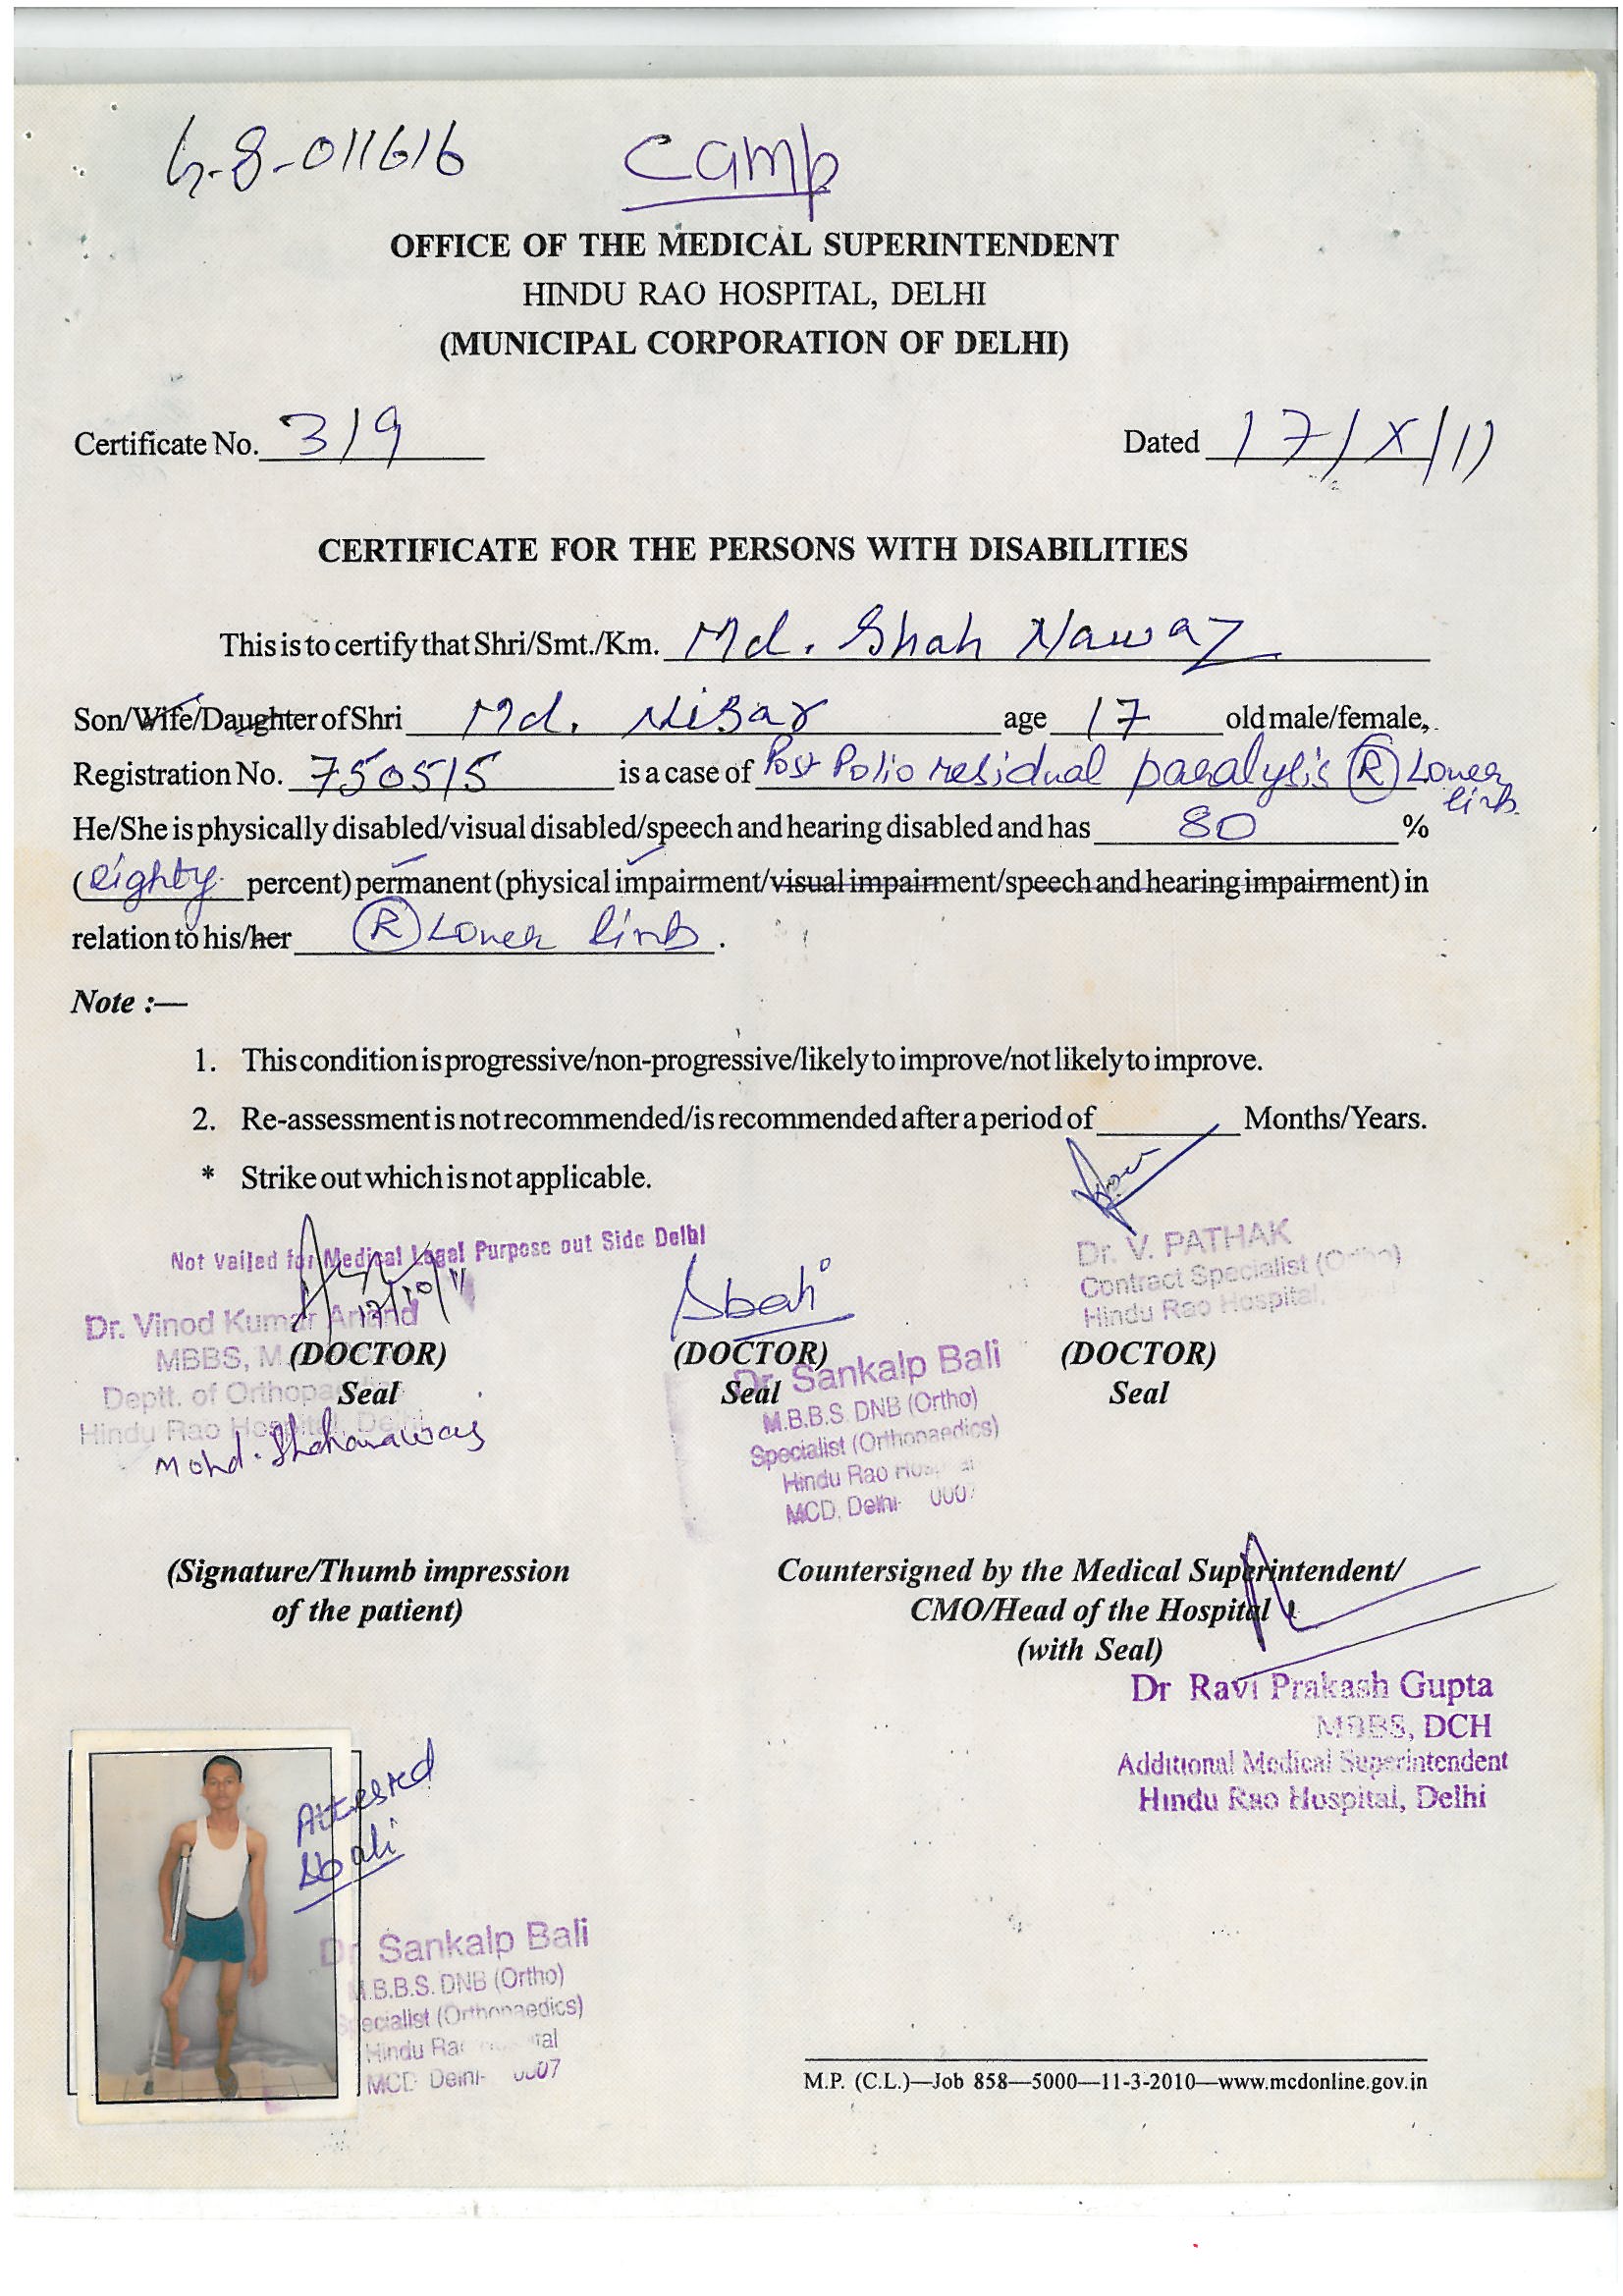 h-8-011616 Camp
OFFICE OF THE MEDICAL SUPERINTENDENT
HINDU RAO HOSPITAL, DELHI
(MUNICIPAL CORPORATION OF DELHI)
Certificate No. 319 Dated 17/X/11
CERTIFICATE FOR THE PERSONS WITH DISABILITIES
This is to certify that Shri/Smt./Km. Md. Shah Nawaz
Son/Wife/Daughter of Shri Md. Nisar age 17 old male/female,
Registration No. 750515 is a case of Post Polio residual paralysis (R) Lower
limb
He/She is physically disabled/visual disabled/speech and hearing disabled and has 80 %
(eighty percent) permanent (physical impairment/visual impairment/speech and hearing impairment) in
relation to his/her (R) Lower limb.
Note :—
1. This condition is progressive/non-progressive/likely to improve/not likely to improve.
2. Re-assessment is not recommended/is recommended after a period of Months/Years.
* Strike out which is not applicable.
Not Vailed for Medical Legal Purpose out Side Delhi
17/10/11
Sbali
Dr. V. PATHAK
Contract Specialist (Ortho)
Hindu Rao Hospital,
Dr. Vinod Kumar Anand
MBBS,
(DOCTOR) (DOCTOR) (DOCTOR)
Seal Seal Seal
Deptt. of Orthopaedics
Hindu Rao Hospital, Delhi
Mohd. Shahanawaj
Dr. Sankalp Bali
M.B.B.S. DNB (Ortho)
Specialist (Orthopaedics)
Hindu Rao Hospital
MCD, Delhi- 0007
(Signature/Thumb impression
of the patient)
Countersigned by the Medical Superintendent/
CMO/Head of the Hospital
(with Seal)
Dr Ravi Prakash Gupta
MBBS, DCH
Additional Medical Superintendent
Hindu Rao Hospital, Delhi
Attested
Sbali
Dr Sankalp Bali
M.B.B.S. DNB (Ortho)
Specialist (Orthopaedics)
Hindu Rao Hospital
MCD Delhi- 0007
M.P. (C.L.)—Job 858—5000—11-3-2010—www.mcdonline.gov.in